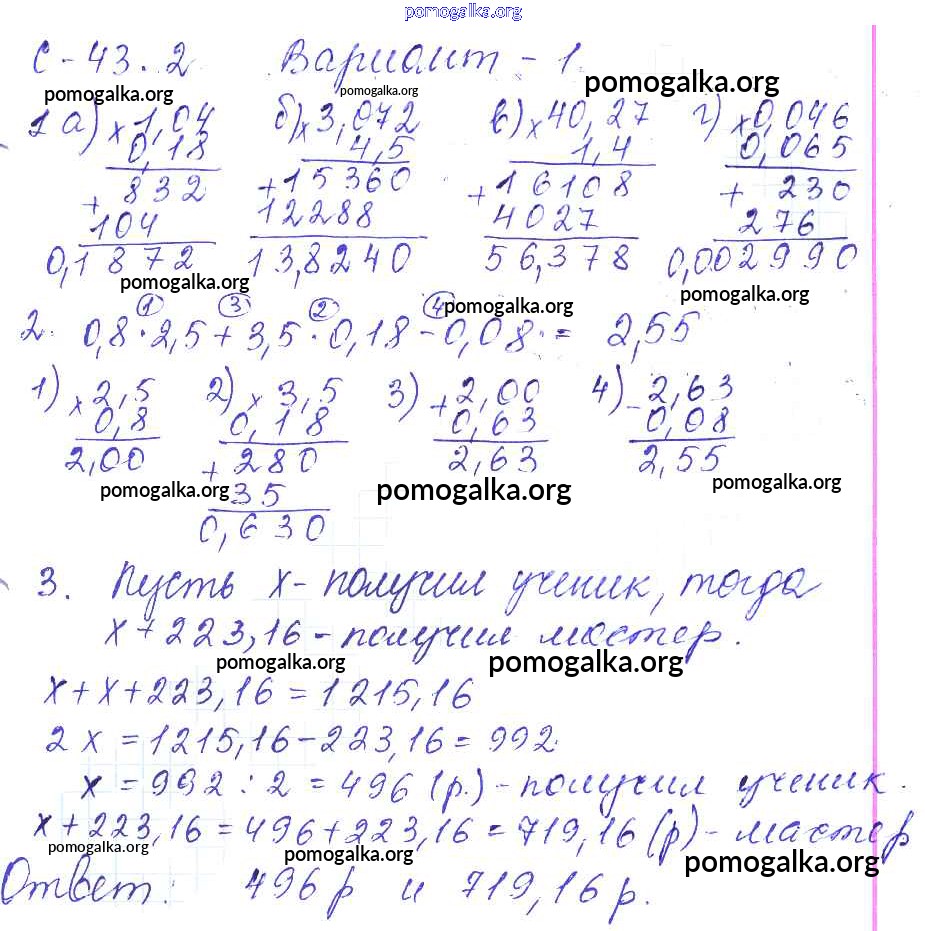 pomogalka.org
С-43.2 Вариант-1.
pomogalka.org pomogalka.org pomogalka.org
1 а) × 1,04 б) × 3,072 в) × 40,27 г) × 0,046
0,18 4,5 1,4 0,065
+ 832 + 15360 + 16108 + 230
104 12288 4027 276
0,1872 13,8240 56,378 0,002990
pomogalka.org pomogalka.org
1 3 2 4 pomogalka.org
2. 0,8·2,5+3,5·0,18-0,08 = 2,55
pomogalka.org
1) × 2,5 2) × 3,5 3) + 2,00 4) - 2,63
0,8 0,18 0,63 0,08
2,00 + 280 2,63 2,55
pomogalka.org 35 pomogalka.org pomogalka.org
0,630
3. Пусть х - получил ученик, тогда
х + 223,16 - получил мастер.
pomogalka.org pomogalka.org
х + х + 223,16 = 1215,16
2х = 1215,16 - 223,16 = 992
х = 992 : 2 = 496 (р.) - получил ученик.
х + 223,16 = 496 + 223,16 = 719,16 (р) - мастер
pomogalka.org pomogalka.org pomogalka.org
Ответ: 496 р и 719,16 р.